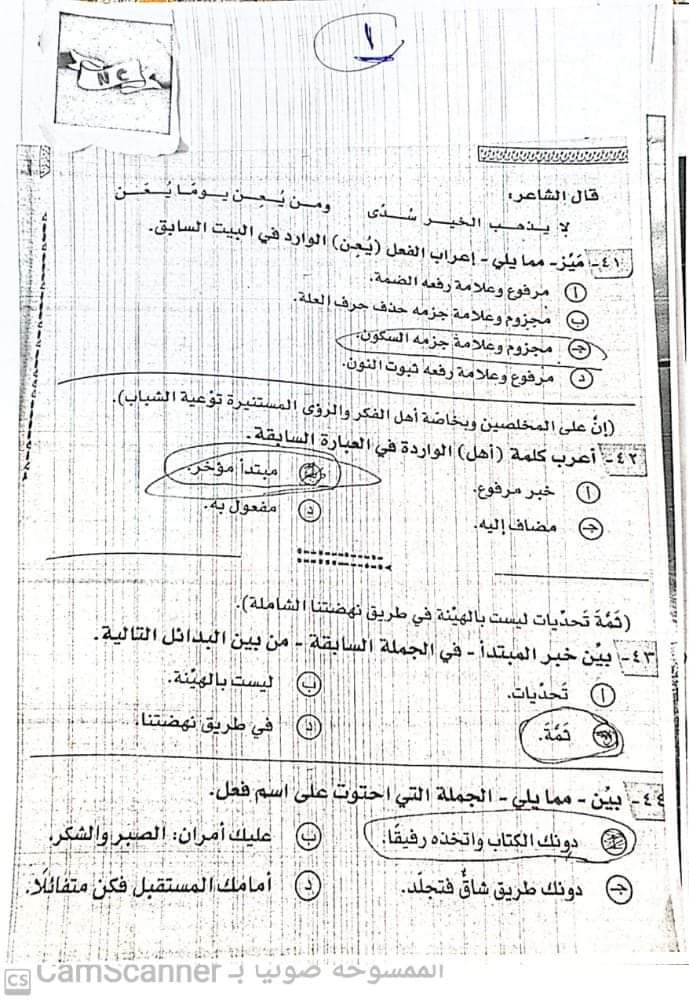 ١
NC
قال الشاعر:
لا يذهب الخير سُدًى ومن يُعِن يومًا يُعَن
٤١- مَيِّز - مما يلي - إعراب الفعل (يُعِن) الوارد في البيت السابق.
أ مرفوع وعلامة رفعه الضمة.
ب مجزوم وعلامة جزمه حذف حرف العلة.
ج مجزوم وعلامة جزمه السكون.
د مرفوع وعلامة رفعه ثبوت النون.
(إنَّ على المخلصين وبخاصّة أهل الفكر والرؤى المستنيرة توْعية الشباب).
٤٢- أعرب كلمة (أهل) الواردة في العبارة السابقة.
أ خبر مرفوع. مبتدأ مؤخر.
ج مضاف إليه. د مفعول به.
(ثَمَّةَ تَحدِّيات ليست بالهيِّنة في طريق نهضتنا الشاملة).
٤٣- بيِّن خبر المبتدأ - في الجملة السابقة - من بين البدائل التالية.
أ تَحدِّيات. ب ليست بالهيِّنة.
ج ثَمَّةَ. د في طريق نهضتنا.
٤٤- بيِّن - مما يلي - الجملة التي احتوت على اسم فعل.
أ دونك الكتاب واتخذه رفيقًا. ب عليك أمران: الصبر والشكر.
ج دونك طريق شاقٌّ فتجلَّد. د أمامك المستقبل فكن متفائلًا.
CS الممسوحة ضوئيا بـ CamScanner